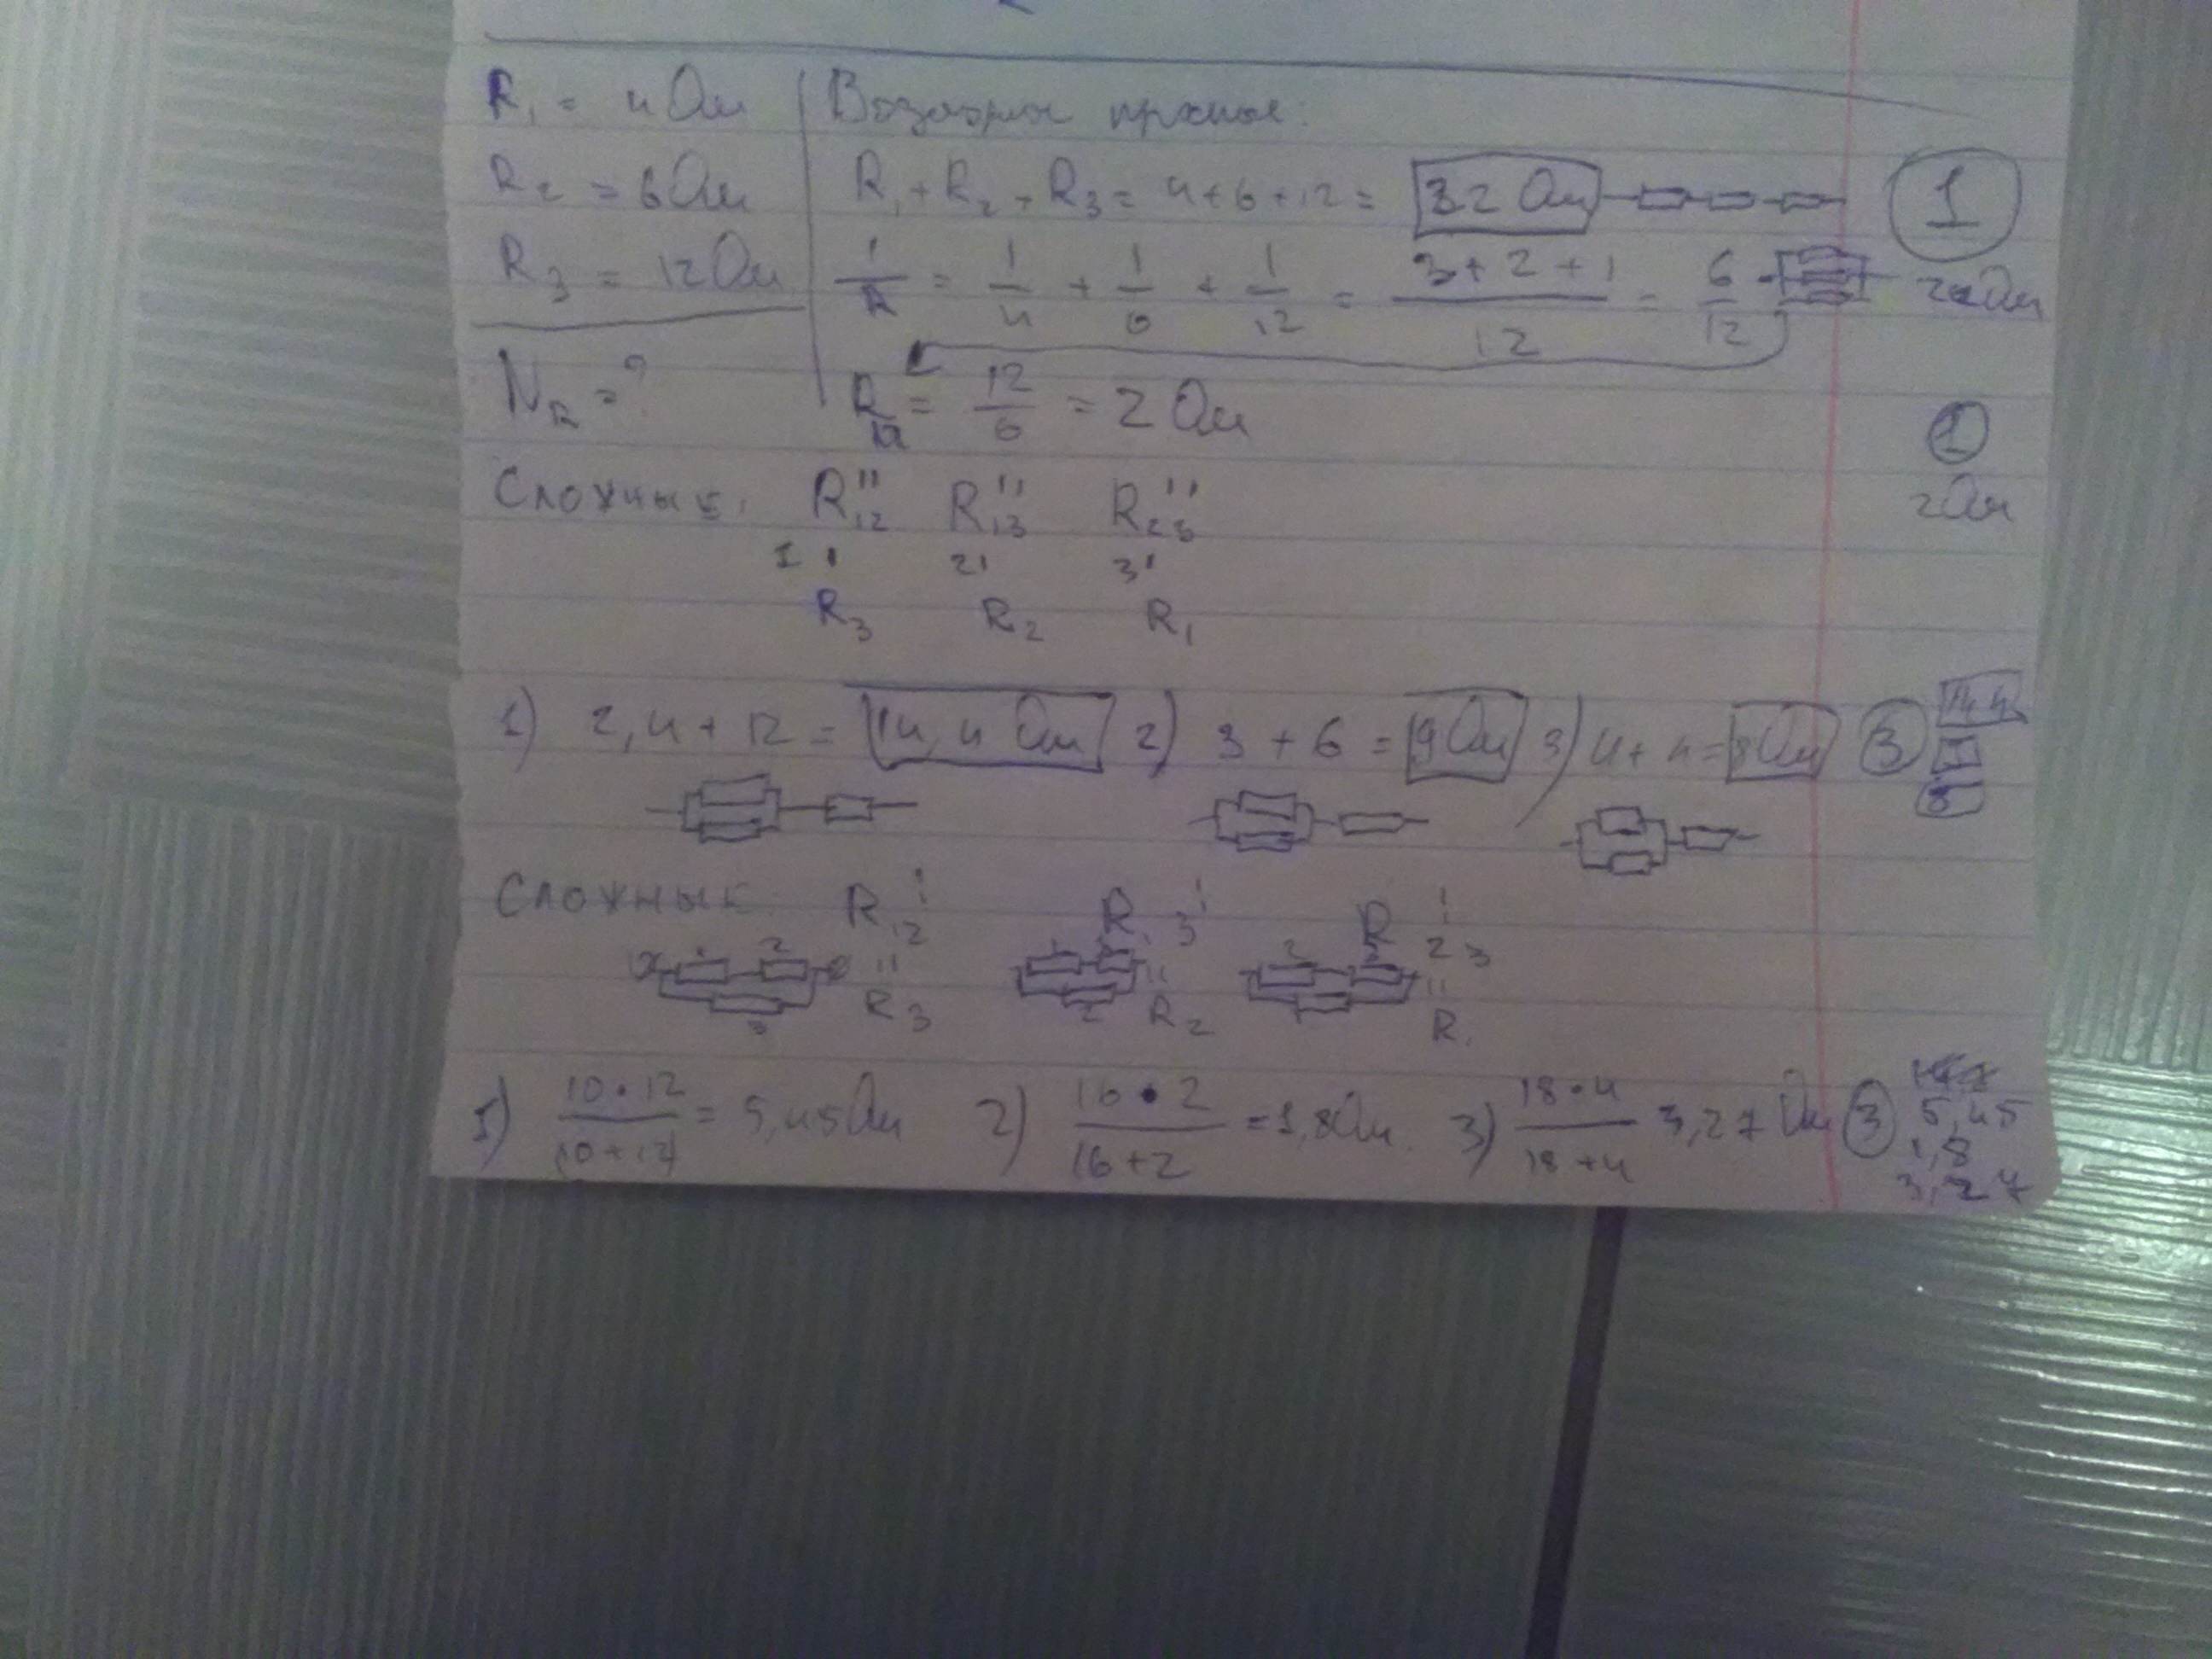 R₁ = 4 Ом
R₂ = 6 Ом
R₃ = 12 Ом
N_R = ?
R₁ + R₂ + R₃ = 4 + 6 + 12 = 32 Ом ①
1/R = 1/4 + 1/6 + 1/12 = (3 + 2 + 1)/12 = 6/12
R = 12/6 = 2 Ом ①
2 Ом
Сложные: R₁₂'' R₁₃'' R₂₃''
1' 2' 3'
R₃ R₂ R₁
1) 2,4 + 12 = 14,4 Ом 2) 3 + 6 = 9 Ом 3) 4 + 4 = 8 Ом ③ 14,4
9
8
Сложные R₁₂' R₁₃' R₂₃'
1 2 '' 1 3 '' 2 3 ''
3 R₃ 2 R₂ 1 R₁
1) (10 · 12)/(10 + 12) = 5,45 Ом 2) (16 · 2)/(16 + 2) = 1,8 Ом. 3) (18 · 4)/(18 + 4) 3,27 Ом ③ 5,45
1,8
3,27